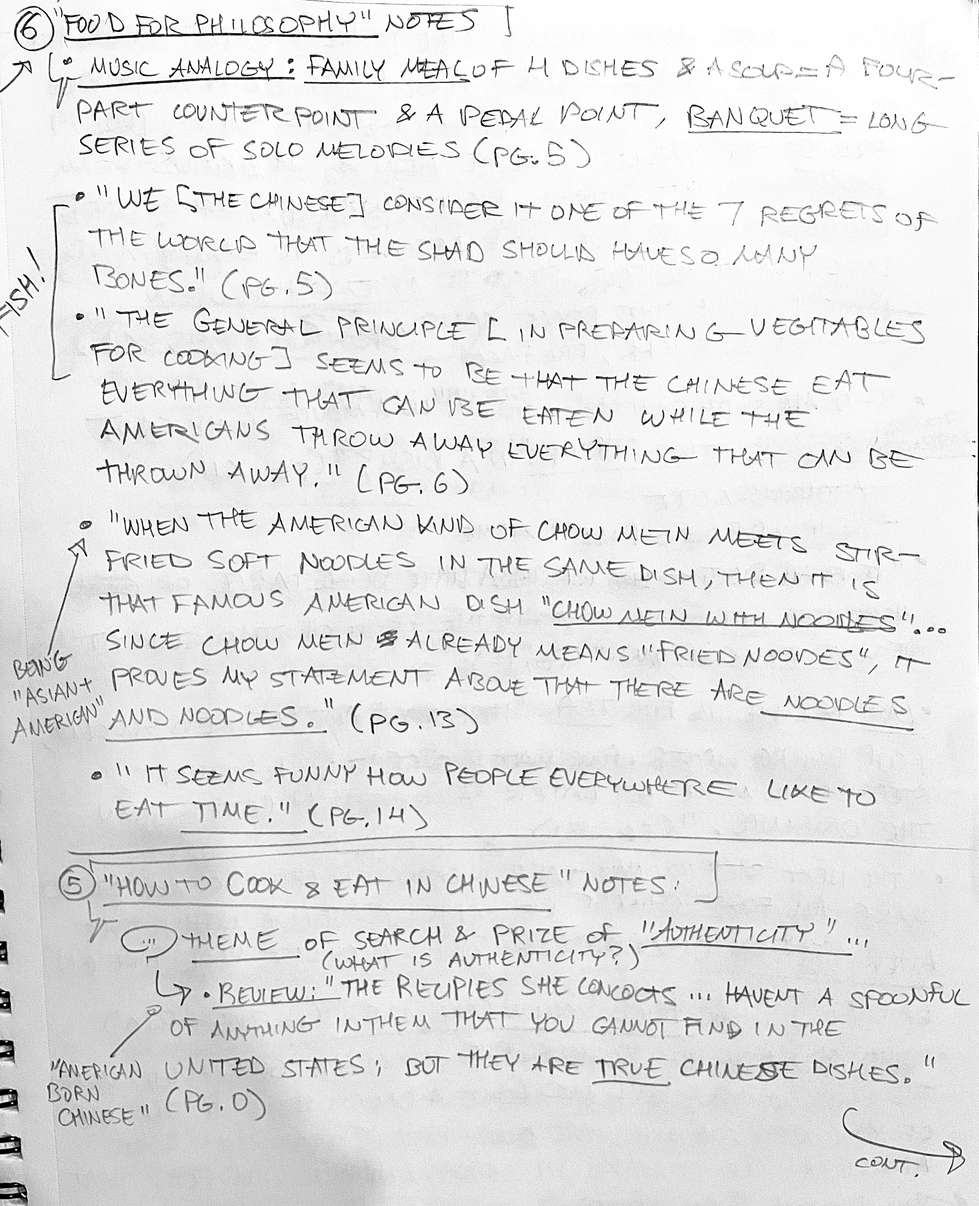 ⑥ "FOOD FOR PHILOSOPHY" NOTES
• MUSIC ANALOGY: FAMILY MEAL OF 4 DISHES & A SOUP = A FOUR-
PART COUNTERPOINT & A PEDAL POINT, BANQUET = LONG
SERIES OF SOLO MELODIES (PG. 5)
FISH!
• "WE [THE CHINESE] CONSIDER IT ONE OF THE 7 REGRETS OF
THE WORLD THAT THE SHAD SHOULD HAVE SO MANY
BONES." (PG. 5)
• "THE GENERAL PRINCIPLE [IN PREPARING VEGITABLES
FOR COOKING] SEEMS TO BE THAT THE CHINESE EAT
EVERYTHING THAT CAN BE EATEN WHILE THE
AMERICANS THROW AWAY EVERYTHING THAT CAN BE
THROWN AWAY." (PG. 6)
• "WHEN THE AMERICAN KIND OF CHOW MEIN MEETS STIR-
FRIED SOFT NOODLES IN THE SAME DISH, THEN IT IS
THAT FAMOUS AMERICAN DISH "CHOW MEIN WITH NOODLES"...
SINCE CHOW MEIN ALREADY MEANS "FRIED NOODES", IT
PROVES MY STATEMENT ABOVE THAT THERE ARE NOODLES
AND NOODLES." (PG. 13)
BEING
"ASIAN +
AMERICAN"
• "IT SEEMS FUNNY HOW PEOPLE EVERYWHERE LIKE TO
EAT TIME." (PG. 14)
⑤ "HOW TO COOK & EAT IN CHINESE" NOTES:
THEME OF SEARCH & PRIZE OF "AUTHENTICITY"...
(WHAT IS AUTHENTICITY?)
• REVIEW: "THE RECIPIES SHE CONCOCTS ... HAVENT A SPOONFUL
OF ANYTHING IN THEM THAT YOU CANNOT FIND IN THE
UNITED STATES; BUT THEY ARE TRUE CHINESE DISHES."
(PG. 0)
"AMERICAN
BORN
CHINESE"
CONT.